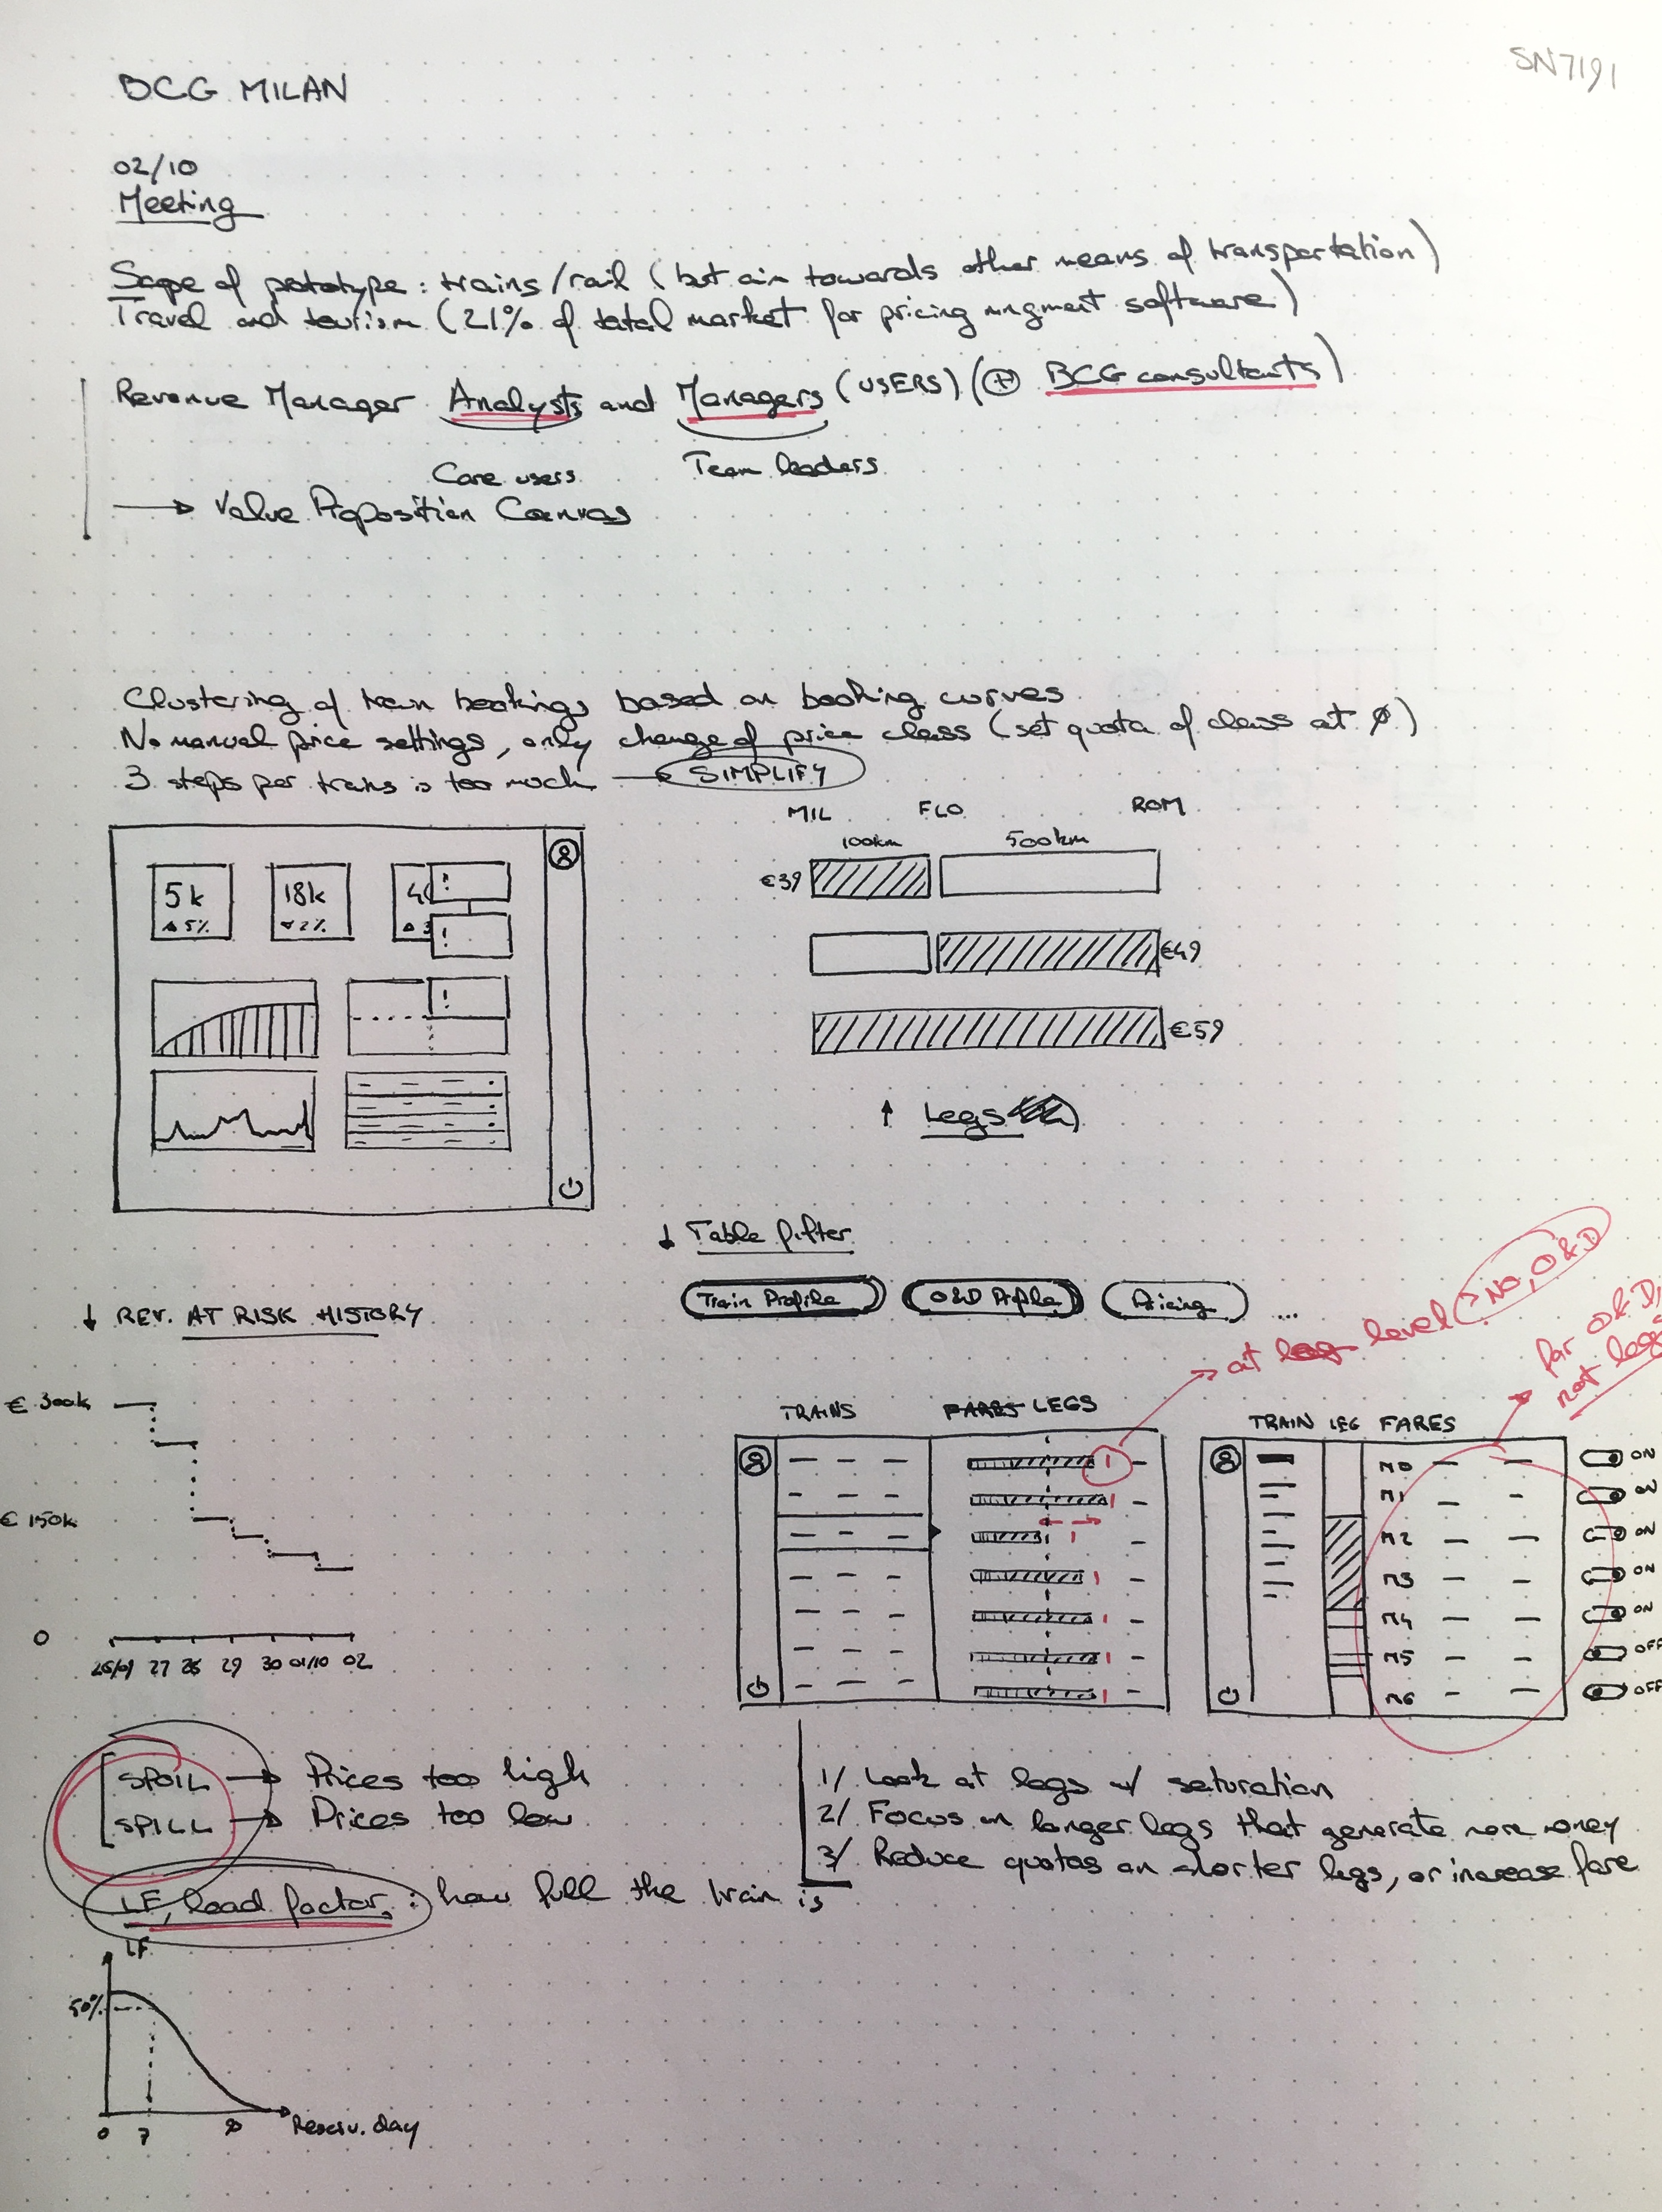 SN7191
BCG MILAN
02/10
Meeting
Scope of prototype: trains/rail (but aim towards other means of transportation)
Travel and tourism (21% of total market for pricing mngment software)
Revenue Manager Analysts and Managers (USERS) (+ BCG consultants)
Core users
Team leaders
→ Value Proposition Canvas
Clustering of train bookings based on booking curves
No manual price settings, only change of price class (set quota of class at Ø)
3 steps per trains is too much → SIMPLIFY
MIL FLO ROM
100km 500km
€39
€49
€59
↑ Legs
5k 18k !
▲5% ▼2% !
!
↓ Table filter
Train Profile O&D Profile Pricing ...
→ at level → NO, O&D
for O&D, not legs
↓ REV. AT RISK HISTORY
€ 300k
€ 150k
0
27 29 30 01/10 02
TRAINS FARES LEGS
TRAIN LEG FARES
M0 ON
M1 ON
M2 ON
M3 ON
M4 ON
M5 OFF
M6 OFF
SPOIL → Prices too high
SPILL → Prices too low
LF, load factor: how full the train is
1/ Look at legs w/ saturation
2/ Focus on longer legs that generate more money
3/ Reduce quotas on shorter legs, or increase fare
LF
50%
0 7
Reserv. day